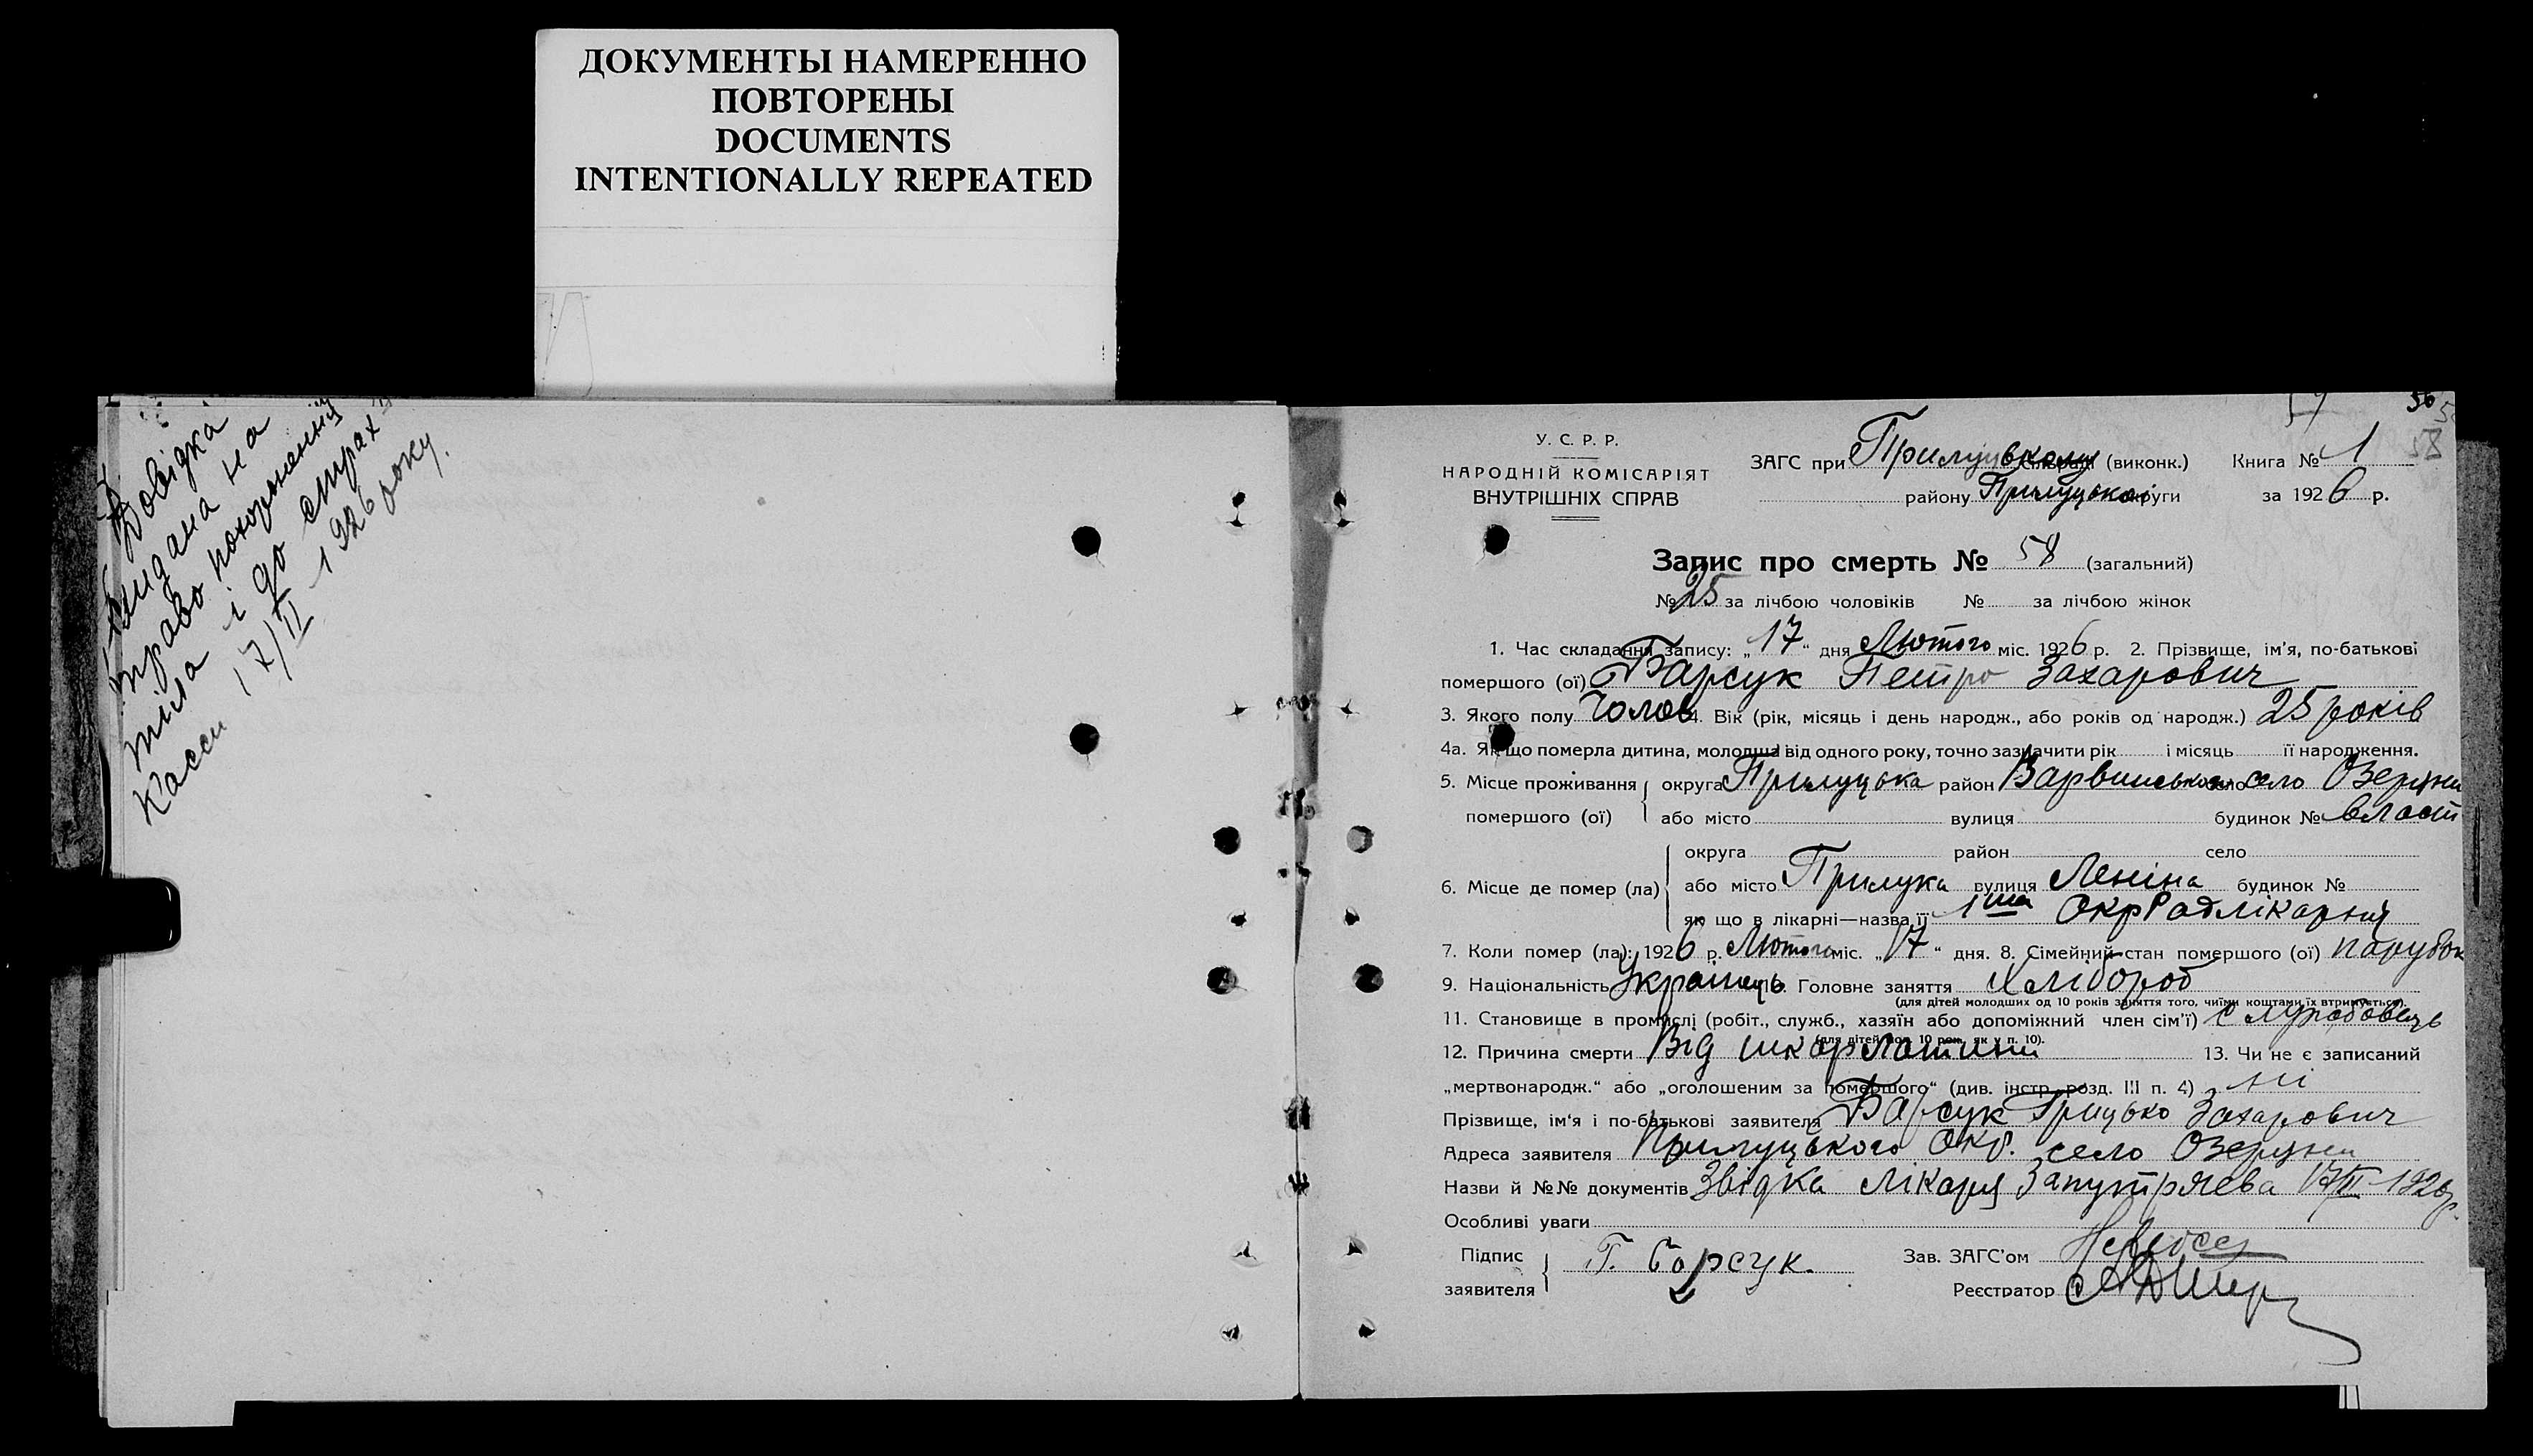 ДОКУМЕНТЫ НАМЕРЕННО
ПОВТОРЕНЫ
DOCUMENTS
INTENTIONALLY REPEATED
Довідка
видана на
право похоронення
тіла і до страх
Касси 17/II 1926 року.
58
У. С. Р. Р.
НАРОДНІЙ КОМІСАРІЯТ
ВНУТРІШНІХ СПРАВ
ЗАГС при Прилуцькому (виконк.) Книга № 1
району Прилуцької округи за 1926 р.
Запис про смерть № 58 (загальний)
№ 25 за лічбою чоловіків № за лічбою жінок
1. Час складання запису: „17“ дня Лютого міс. 1926 р. 2. Прізвище, ім'я, по-батькові
помершого (ої) Барсук Петро Захарович
3. Якого полу Чолов 4. Вік (рік, місяць і день народж., або років од народж.) 25 років
4а. Як що померла дитина, молодша від одного року, точно зазначити рік і місяць її народження.
5. Місце проживання помершого (ої) округа Прилуцька район Варвинського село Озеряни
або місто вулиця будинок № власн
6. Місце де помер (ла) округа район село
або місто Прилука вулиця Леніна будинок №
як що в лікарні—назва її 1ша ОкрРадлікарня
7. Коли помер (ла): 1926 р. Лютого міс. „17“ дня. 8. Сімейний стан помершого (ої) парубок
9. Національність Українець 10. Головне заняття Хлібороб
(для дітей молодших од 10 років заняття того, чиїми коштами їх втримується).
11. Становище в промислі (робіт., служб., хазяїн або допоміжний член сім'ї) службовець
(для дітей мол. 10 рок. як у п. 10).
12. Причина смерти Від шкарлатини 13. Чи не є записаний
„мертвонародж.“ або „оголошеним за помершого“ (див. інстр. розд. III п. 4) ні
Прізвище, ім'я і по-батькові заявителя Барсук Грицько Захарович
Адреса заявителя Прилуцького Окр. село Озеряни
Назви й №№ документів Звідка лікаря 17/II 1926р.
Особливі уваги
Підпис заявителя Г. Барсук. Зав. ЗАГС'ом
Реєстратор